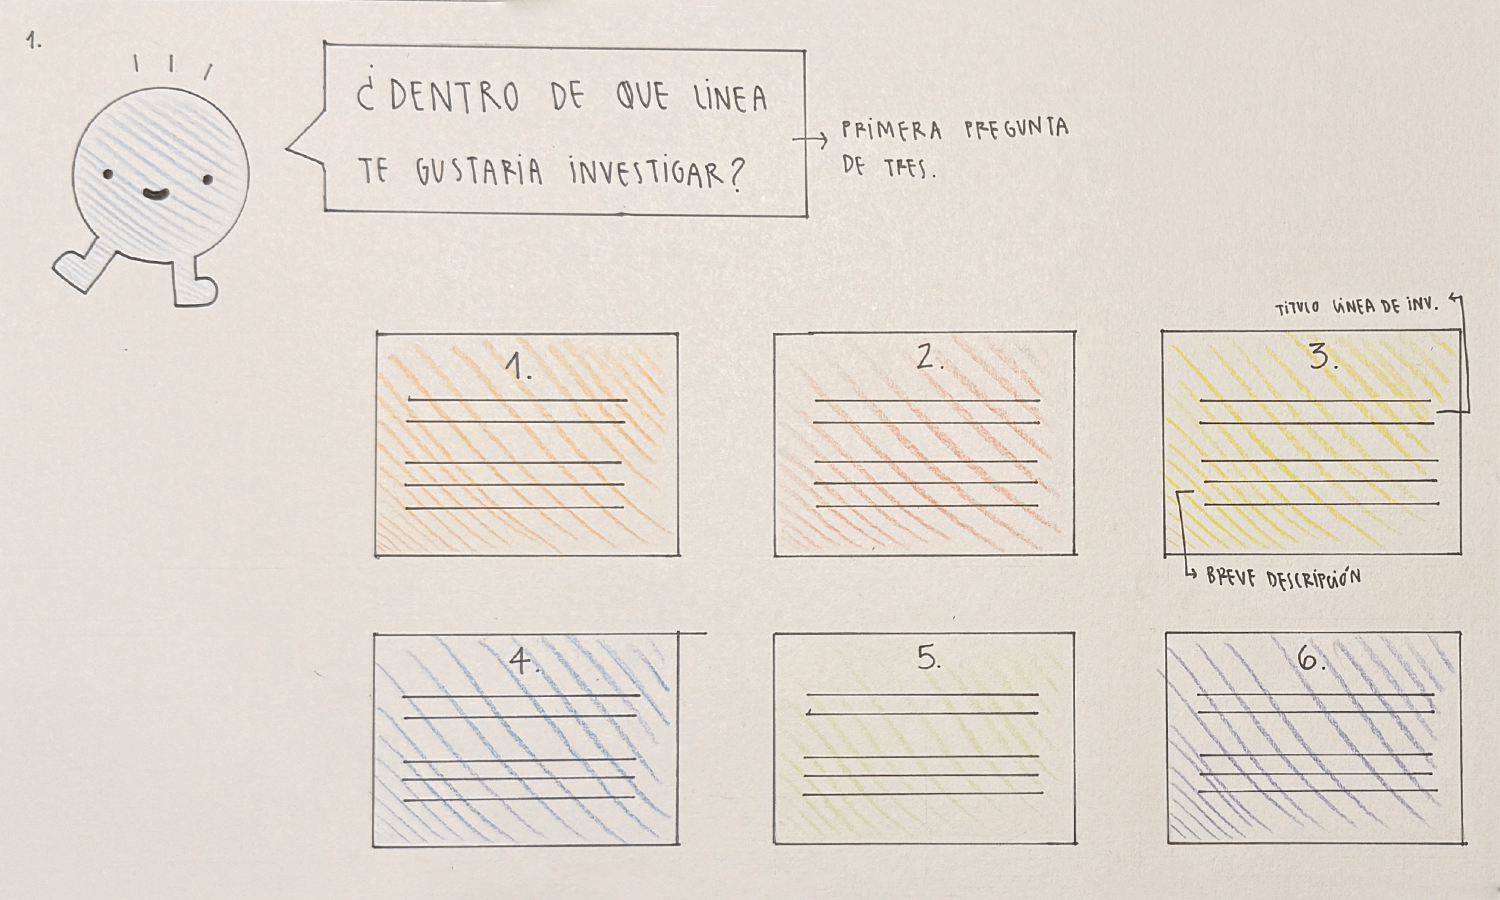 1.
¿DENTRO DE QUE LÍNEA
TE GUSTARÍA INVESTIGAR?
PRIMERA PREGUNTA
DE TRES.
TITULO LÍNEA DE INV.
1.
2.
3.
BREVE DESCRIPCIÓN
4.
5.
6.